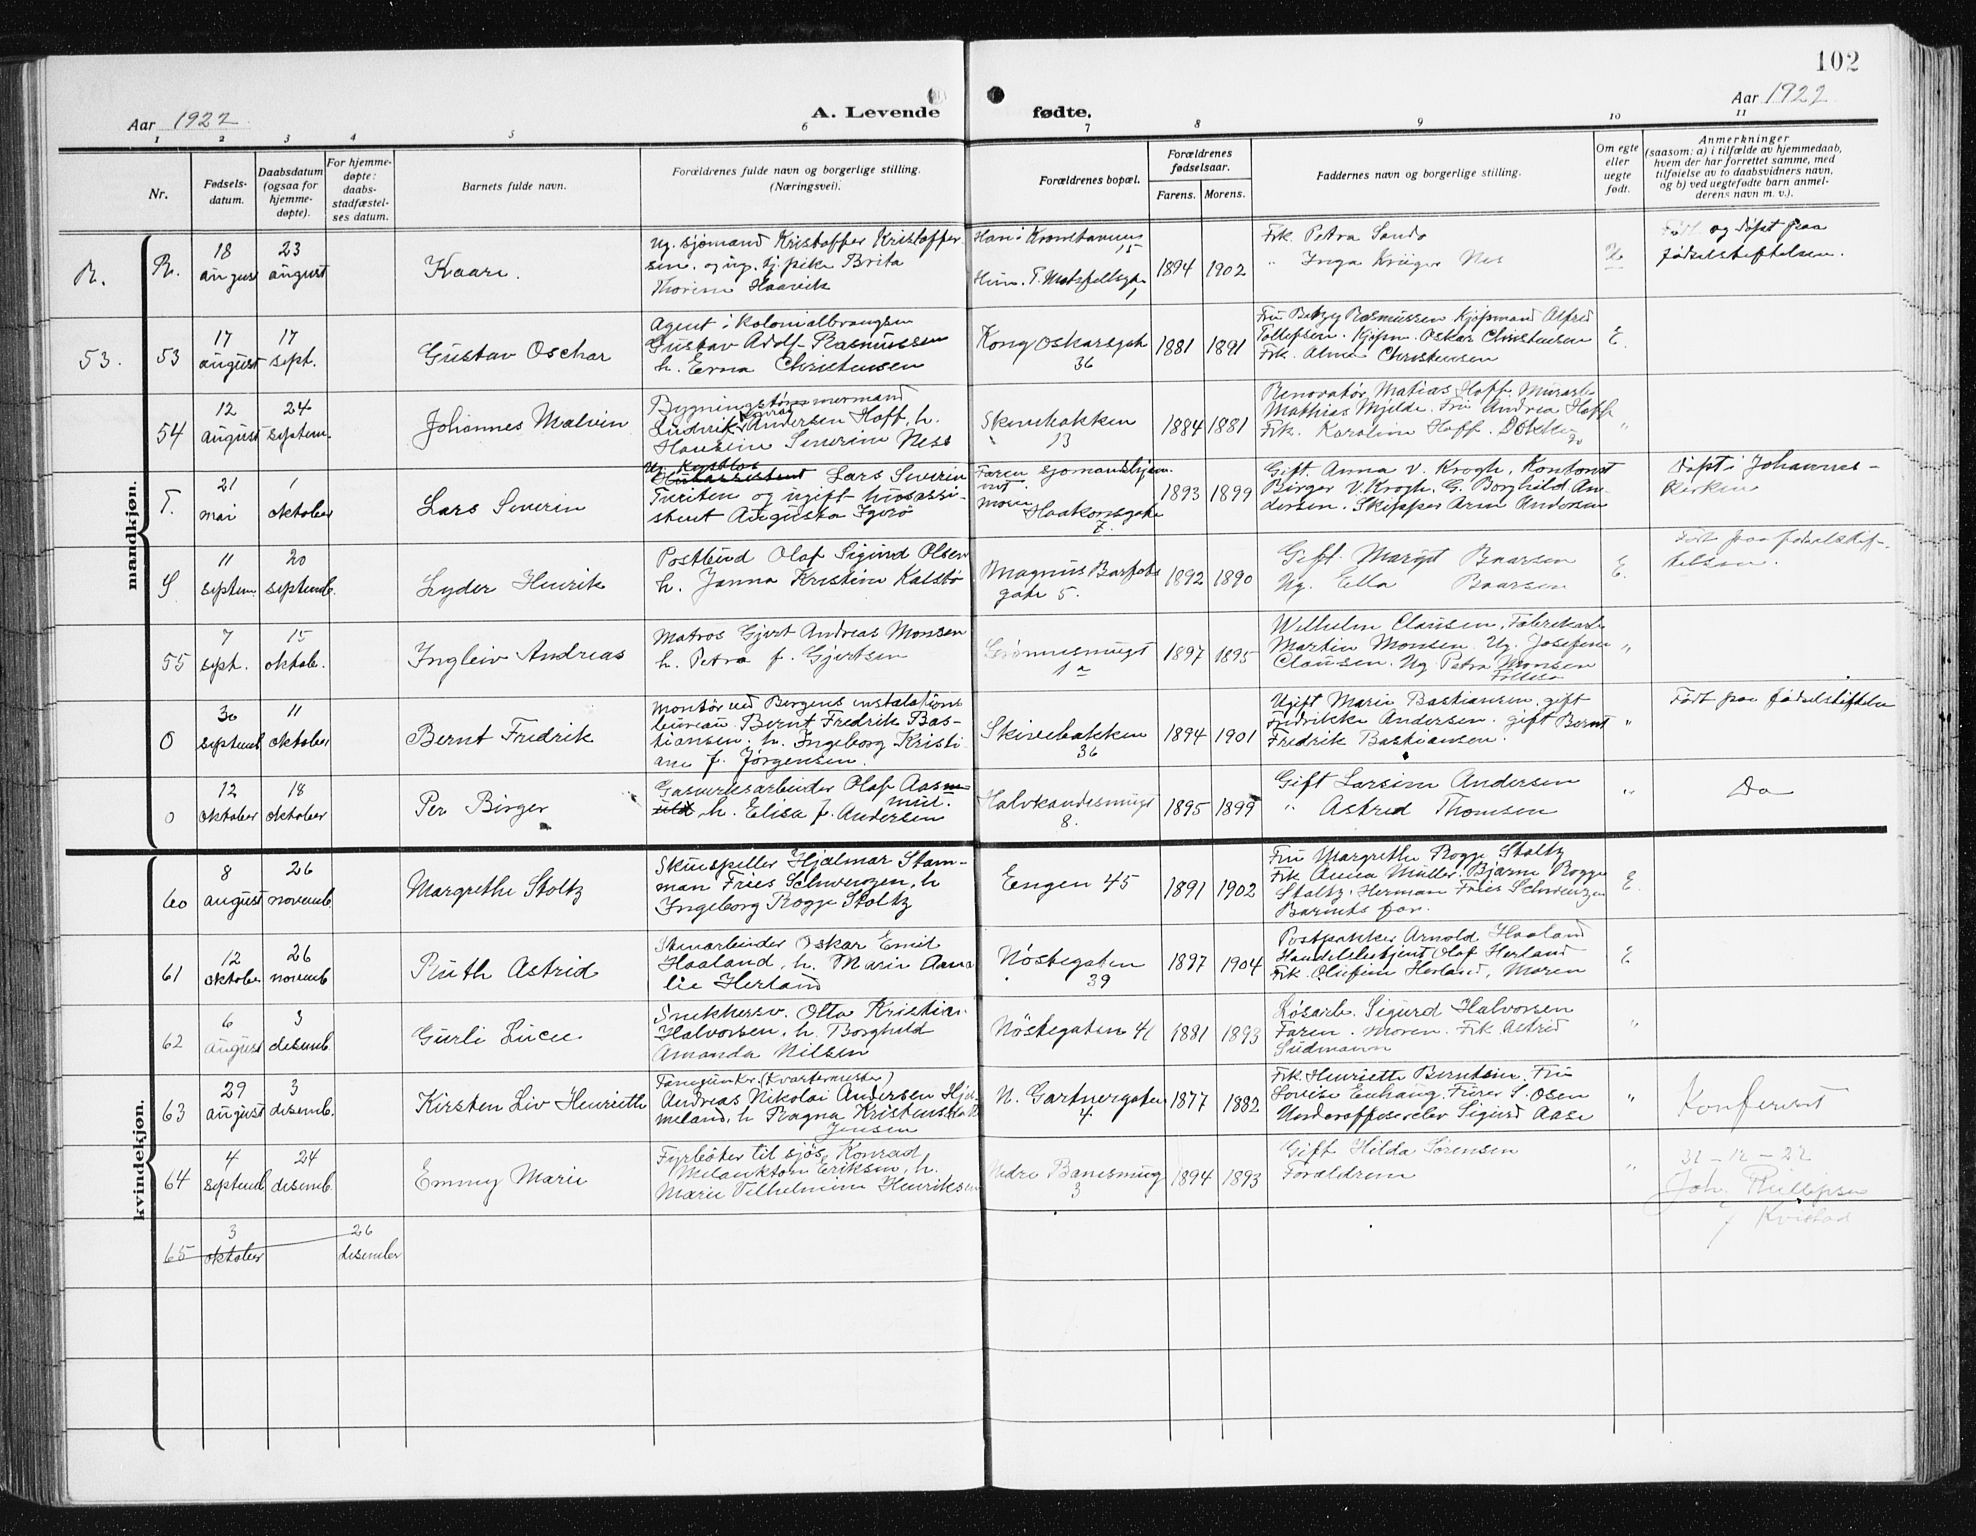 102
Aar 1922.
A. Levende fødte.
Aar 1922.
1 2 3 4 5 6 7 8 9 10 11
Nr.
Fødsels-
datum.
Daabsdatum
(ogsaa for
hjemme-
døpte).
For hjemme-
døpte:
daabs-
stadfæstel-
ses datum.
Barnets fulde navn.
Forældrenes fulde navn og borgerlige stilling.
(Næringsvei).
Forældrenes bopæl.
Forældrenes
fødselsaar.
Farens. Morens.
Faddernes navn og borgerlige stilling.
Om egte
eller
uegte
født.
Anmerkninger
(saasom: a) i tilfælde av hjemmedaab,
hvem der har forrettet samme, med
tilføielse av to daabsvidners navn,
og b) ved uegtefødte barn anmel-
derens navn m. v.).
mandkjøn.
R. R.
18
august
23
august
Kaare.
Ug. sjømand Kristoffer Kristoffer-
sen. og ug. tj.pike Brita
Thorine Haavik
15
1894 1902
Frk. Petra Sando
" Inga Krüger Nes
Født og døpt paa
fødselstiftelsen.
53. 53
17
august
17
sept.
Gustav Oschar
Agent i kolonialbrangsen
Gustav Adolf Rasmussen
h. Erna Christensen
Kong Oskarsgate
36
1881 1891
Fru Betzy Rasmussen Kjøpmand Alfred
Tollefsen. Kjøpm. Oskar Christensen
Frk. Alma Christensen
E.
54
12
august
24
septem.
Johannes Malvin
Bygningstømmermand
Andersen Hoff. h.
Hansine Severine Ness
Skivebakken
13
1884 1881
Renovatør Matias Hoff. Murarb.
Mathias Mjelde. Fru Andrea Hoff
Frk. Karoline Hoff.
"
T.
21
mai
1
oktober
Lars Severin
Lars Severin
og ugift husassi-
stent Augusta
Faren sjømandshjem-
met
Moren Haakonsgate
7.
1893 1899
Gift. Anna v. Krogh. Kontorist
Birger v. Krogh. G. Borghild An-
dersen. Skipper Arne Andersen
Døpt i Johannes-
kirken
S
11
septem.
20
septemb.
Lyder Henrik
Postbud Olaf Sigurd Olsen
h. Janna Kristine Kalstø
Magnus Barfots
gate 5.
1892 1890
Gift. Margit Baarsen
Ug. Ella Baarsen
E.
Født paa fødselstif-
telsen.
55
7
sept.
15
oktobe.
Ingleiv Andreas
Matros Gjert Andreas Monsen
h. Petra f. Gjertsen
Grønnesmuget
1a
1897 1895
Wilhelm Clausen. Fabrikarb.
Martin Monsen. Ug. Josefine
Clausen. Ug Petra Monsen
"
O
30
septemb
11
oktober
Bernt Fredrik
Montør ved Bergens instalations
bureau. Bernt Fredrik Bas-
tiansen. h. Ingeborg Kristi-
ane f. Jørgensen.
Skivebakken
36
1894 1901
Ugift Marie Bastiansen. gift
Fredrikke Andersen. gift Bernt
Fredrik Bastiansen.
"
Født paa fødselstiftelse
0
12
oktober
18
oktober
Per Birger
Gasverksarbeider Olaf Aas-
mul.
h. Elisa f. Andersen
Halvkandesmuget
8.
1895 1899
Gift Larsine Andersen
" Astrid Thomsen
"
Do
kvindekjøn.
60
8
august
26
novemb
Margrethe Stoltz
Skuespiller Hjalmar Stam-
man Fries Schwenzen, h
Ingeborg Rogge Stoltz
Engen 45
1891 1902
Fru Margrethe Rogge Stoltz
Frk Anna Müller. Bjarne Rogge
Stoltz. Herman Fries Schwenzen
Barnets far.
E.
61
12
oktober
26
novemb
Ruth Astrid
Oskar Emil
Haaland, h. Marie Ama
lie Herland
Nøstegaten
39
1897 1904
Postpakker Arnold Haaland
Handelsbetjent Olaf Herland
Frk. Olufine Herland, Moren
E
62
6
august
3
desemb.
Gurli Lucie
Snekkersv. Otto Kristian
Halvorsen, h Borghild
Amanda Nilsen
Nøstegaten 41
1881 1893
Løsarb. Sigurd Halvorsen
Faren. Moren. Frk Astrid
Sudmann
"
63
29
august
3
desemb.
Kirsten Liv Henriette
(Kvartermester)
Andreas Nikolai Andersen Hjel-
meland, h Ragna
Jensen
N. Gartnergaten
4
1877 1882
Frk. Henriette Berntsen. Fru
Lovise Enhaug. Furer S. Osen
Underofficerselev Sigurd Aase
"
Konferert
64
4
septemb
24
desemb.
Emmy Marie
Fyrbøter til sjøs Konrad
Melankton Eriksen, h.
Marie Vilhelmine Henriksen
Nedre Banesmug
3
1894 1893
Gift Hilda Sørensen
Forældrene
"
31-12-22
Joh. Phillipsen
f Kvistad
65
3
oktober
26
desember